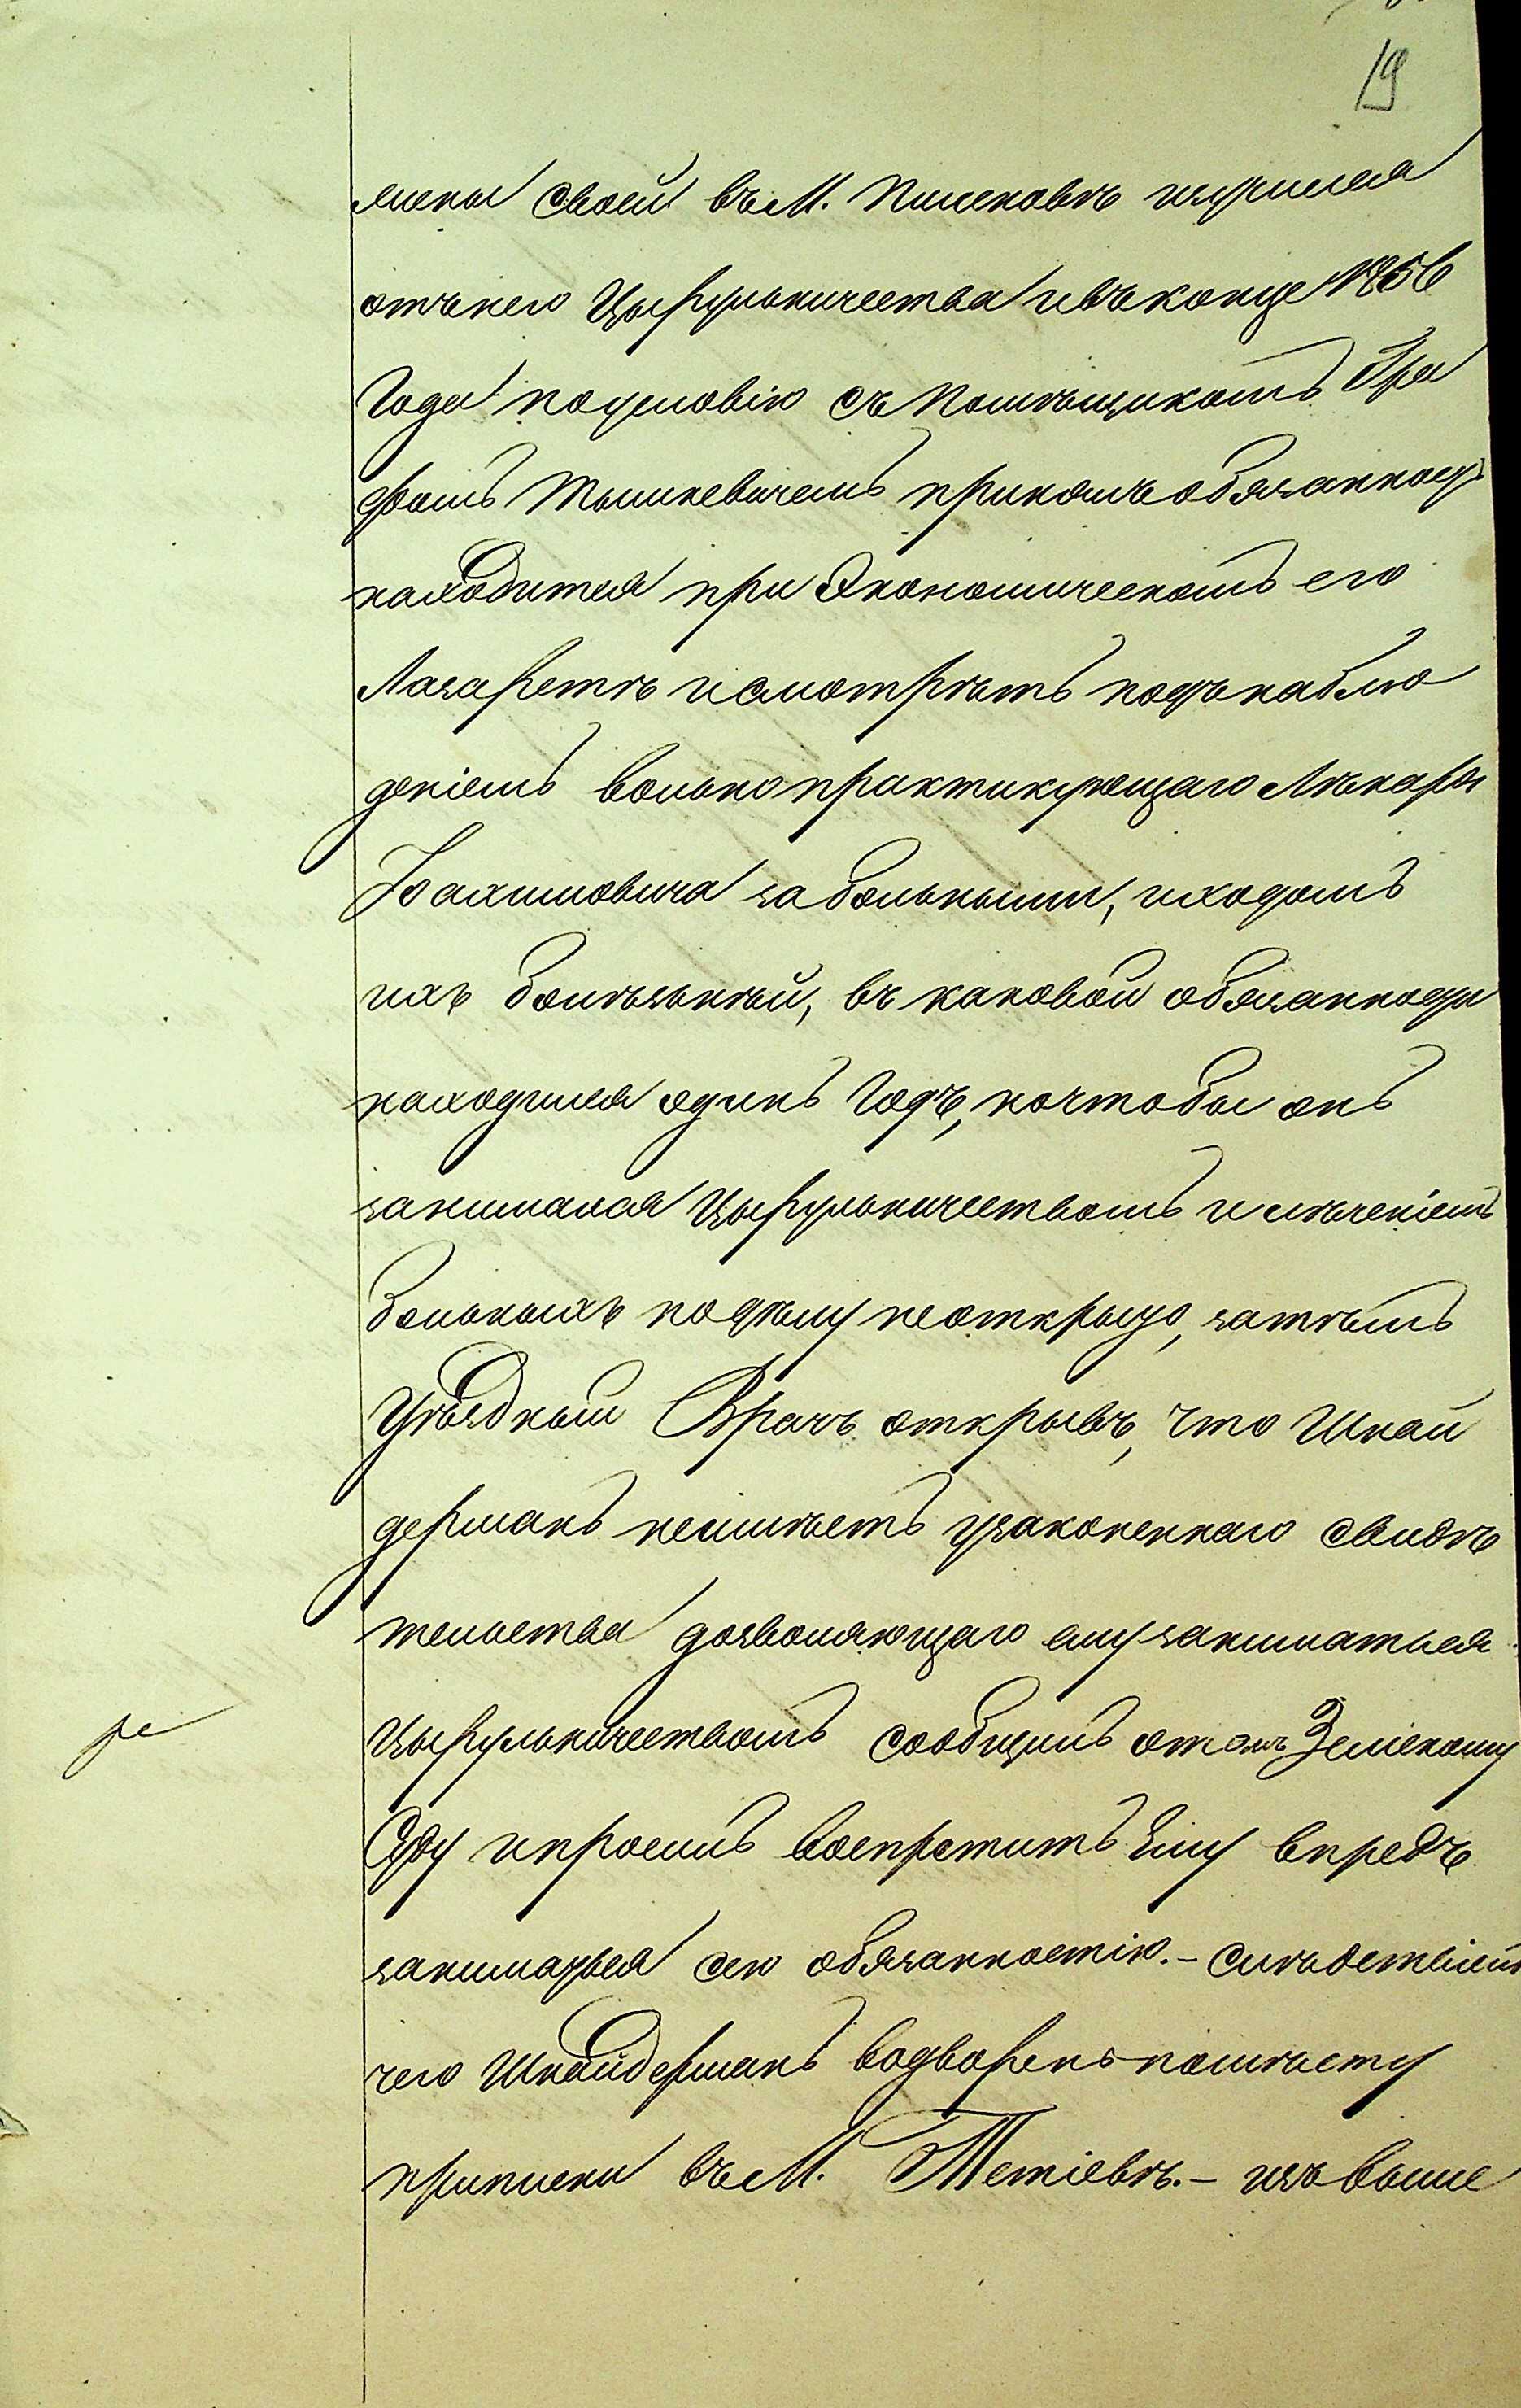 19
жены своей въ М. Пинсковѣ изучился
отънего Цырульничества ивъконце 1856
Года поусловію съ Помѣщикомъ Гра
фомъ Тышкевичемъ принялъ обязанность
находится при Экономическомъ его
Лазаретѣ исмотрѣть подънаблю
деніемъ вольнопрактикующаго Лѣкаря
Бахимовича за больными, иходомъ
ихъ болѣзней, въ каковой обязанности
находился одинъ Годъ, ночтобы онъ
занимался Цырульничествомъ и лѣченіемъ
больныхъ подѣлу неоткрыто, затѣмъ
Уѣздный Врачъ открывъ, что Шнай
дерманъ неимѣетъ узаконеннаго свидѣ
тельства дозволяющаго ему заниматься
Цырульничествомъ сообщилъ отомъ Земскому
Суду ипросилъ воспретить Ему впредъ
заниматься сею обязанностію.- Слѣдствіемъ
чего Шнайдерманъ водворенъ помѣсту
приписки въ М. Тетіевѣ.- изъ выше